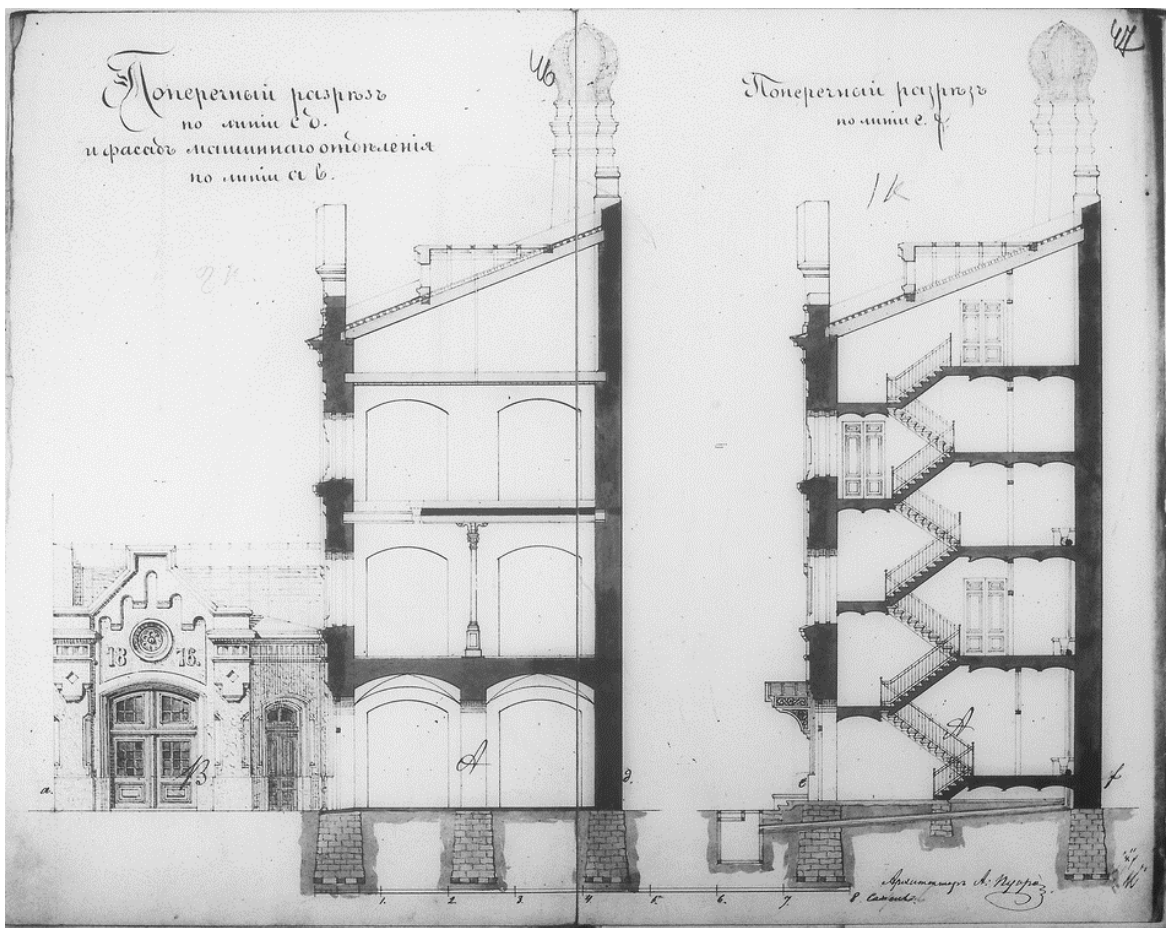 Поперечный разрѣзъ
по линіи c d.
и фасадъ машиннаго отдѣленія
по линіи a b.
46
47
Поперечный разрѣзъ
по линіи e. f.
1876.
B
A
A
a.
d.
e
f
1. 2. 3. 4. 5. 6. 7. 8 Сажень.
Архитекторъ А.